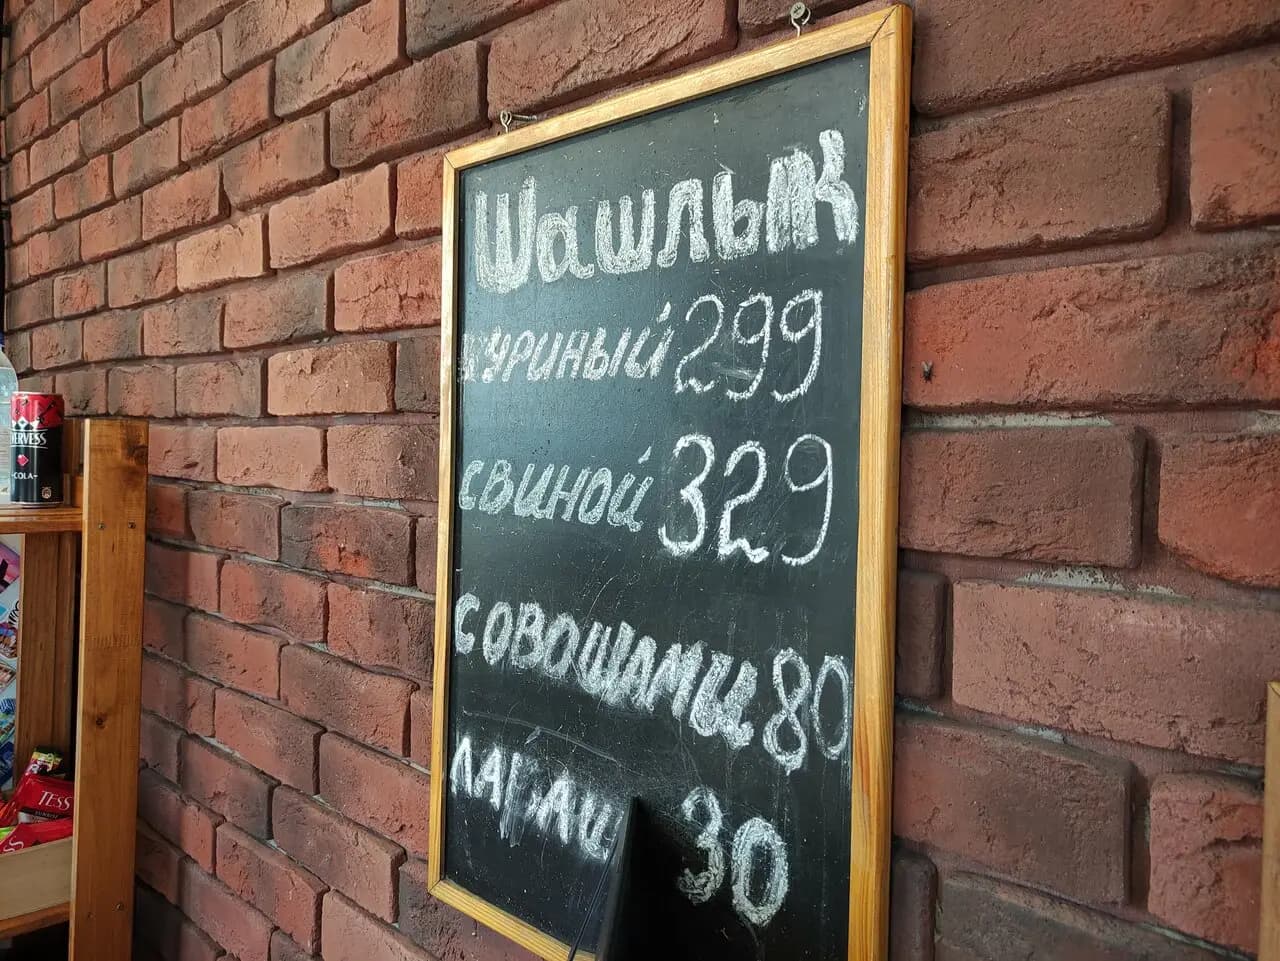 Шашлык
куриный 299
свиной 329
с овощами 80
лаваш 30
COLA
TESS